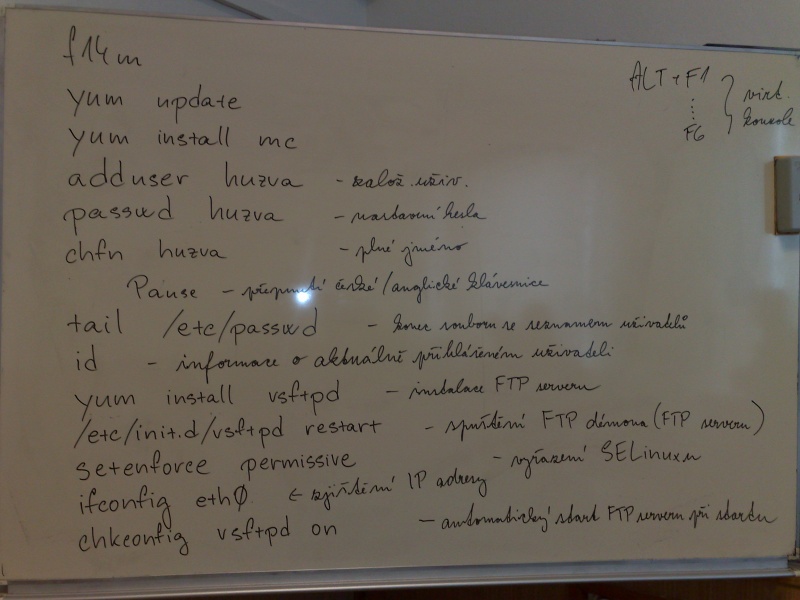 f14m
yum update
yum install mc
adduser huzva - založ. uživ.
passwd huzva - nastavení hesla
chfn huzva - plné jméno
Pause - přepnutí české/anglické klávesnice
tail /etc/passwd - konec souboru se seznamem uživatelů
id - informace o aktuálně přihlášeném uživateli
yum install vsftpd - instalace FTP serveru
/etc/init.d/vsftpd restart - spuštění FTP démona (FTP serveru)
setenforce permissive - vyřazení SELinuxu
ifconfig eth0 ← zjištění IP adresy
chkconfig vsftpd on - automatický start FTP serveru při startu
ALT+F1
F6
virt.
konzole